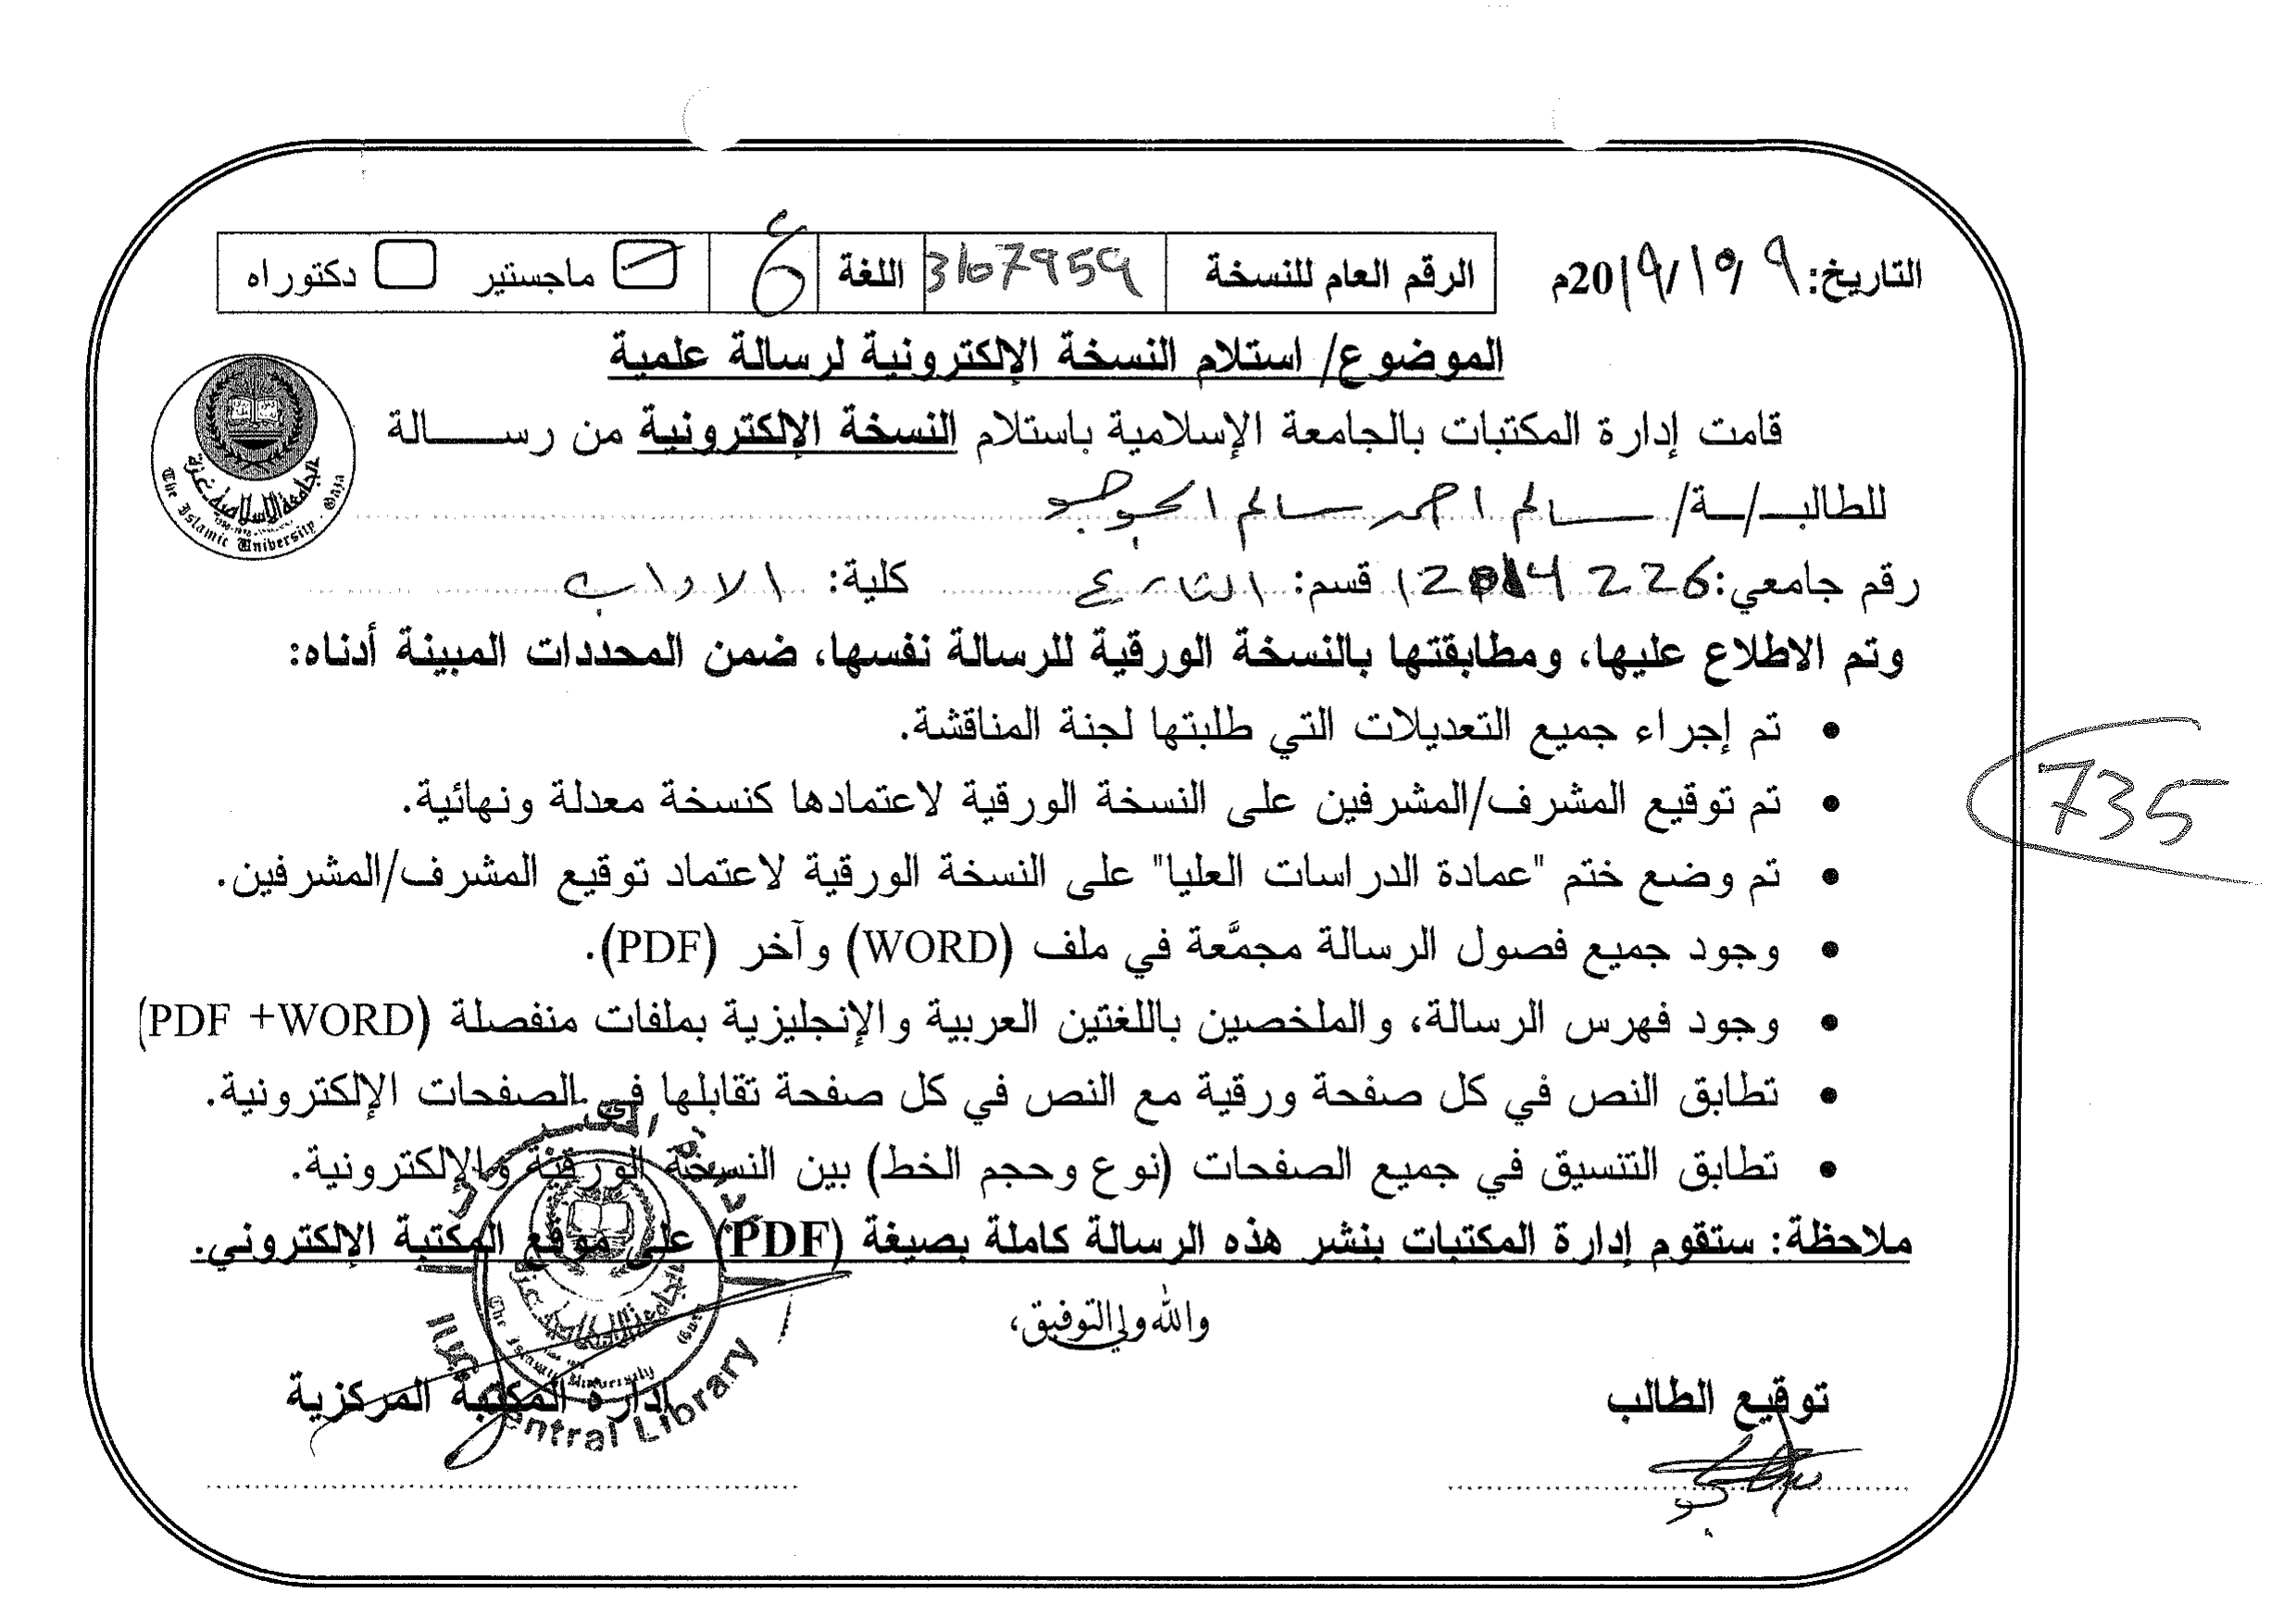 التاريخ: 9/10/2019م الرقم العام للنسخة 3107959 اللغة ع ماجستير دكتوراه
الموضوع/ استلام النسخة الإلكترونية لرسالة علمية
قامت إدارة المكتبات بالجامعة الإسلامية باستلام النسخة الإلكترونية من رســـالة
للطالبـ/ـة/ سالم احمد سالم
رقم جامعي: 226 قسم: التاريخ كلية: الاداب
وتم الاطلاع عليها، ومطابقتها بالنسخة الورقية للرسالة نفسها، ضمن المحددات المبينة أدناه:
• تم إجراء جميع التعديلات التي طلبتها لجنة المناقشة.
• تم توقيع المشرف/المشرفين على النسخة الورقية لاعتمادها كنسخة معدلة ونهائية.
735
• تم وضع ختم "عمادة الدراسات العليا" على النسخة الورقية لاعتماد توقيع المشرف/المشرفين.
• وجود جميع فصول الرسالة مجمَّعة في ملف (WORD) وآخر (PDF).
• وجود فهرس الرسالة، والملخصين باللغتين العربية والإنجليزية بملفات منفصلة (PDF +WORD)
• تطابق النص في كل صفحة ورقية مع النص في كل صفحة تقابلها في الصفحات الإلكترونية.
• تطابق التنسيق في جميع الصفحات (نوع وحجم الخط) بين النسخة الورقية والإلكترونية.
ملاحظة: ستقوم إدارة المكتبات بنشر هذه الرسالة كاملة بصيغة (PDF) على موقع المكتبة الإلكتروني.
والله ولي التوفيق،
توقيع الطالب إدارة المكتبة المركزية
الجامعة الإسلامية غزة
The Islamic University - Gaza
Central Library